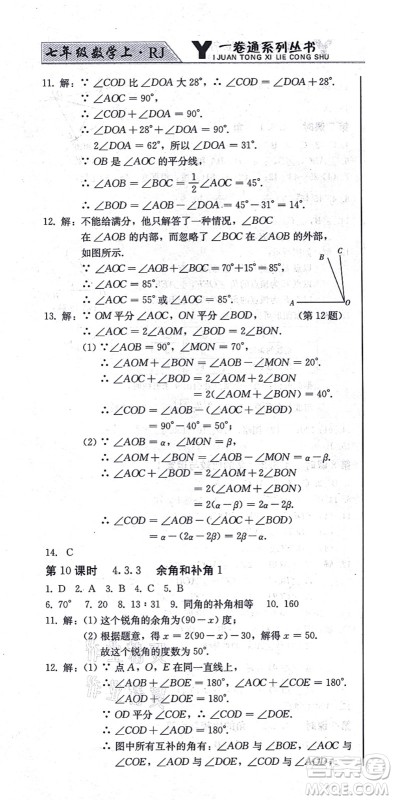 七年级数学上·RJ
一卷通系列丛书
YIJUAN TONG XI LIE CONG SHU
11. 解：∵ ∠COD 比∠DOA 大 28°，∴ ∠COD=∠DOA+28°.
∵ ∠AOC=90°，∴ ∠COD+∠DOA=90°.
2∠DOA=62°，所以∠DOA=31°.
∵ OB 是∠AOC 的平分线，
∴ ∠AOB=∠BOC=1/2∠AOC=45°.
∴ ∠BOD=∠AOB-∠DOA=45°-31°=14°.
12. 解：不能给满分，他只解答了一种情况，∠BOC
在∠AOB 的内部，而忽略了∠BOC 在∠AOB 的外部，
如图所示.
∵ ∠AOC=∠AOB+∠BOC=70°+15°=85°，
∴ ∠AOC=85°.
∴ ∠AOC=55°或∠AOC=85°.
A B C O
（第 12 题）
13. 解：∵ OM 平分∠AOC，ON 平分∠BOD，
(1) ∵ ∠AOB=90°，∠MON=70°，
∴ ∠AOM+∠BON=∠AOB-∠MON=20°.
∴ ∠AOC+∠BOD=2∠AOM+2∠BON
=2(∠AOM+∠BON)=40°.
∴ ∠COD=∠AOB-(∠AOC+∠BOD)
=90°-40°=50°；
(2) ∵ ∠AOB=α，∠MON=β，
∴ ∠AOM+∠BON=∠AOB-∠MON=α-β.
∴ ∠AOC+∠BOD=2∠AOM+2∠BON
=2(∠AOM+∠BON)=2(α-β).
∴ ∠COD=∠AOB-(∠AOC+∠BOD)
=α-2(α-β)=2β-α.
14. C
第 10 课时 4.3.3 余角和补角 1
1. D 2. A 3. C 4. A 5. C
6. 70° 7. 20 8. 13∶5 9. 同角的补角相等 10. 160
11. 解：(1) 这个锐角的余角为(90-x)度；
(2) 根据题意，得 x=2(90-x)-30，解得 x=50.
故这个锐角的度数为 50°.
12. 解：(1) ∵ 点 A，O，E 在同一直线上，
∴ ∠AOB+∠BOE=180°，∠AOC+∠COE=180°，
∠AOD+∠DOE=180°.
∵ OD 平分∠COE，∴ ∠COD=∠DOE.
∴ ∠AOD+∠COD=180°.
∴ 图中所有互补的角有：∠AOB 与∠BOE，
∠AOC 与∠COE，∠AOD 与∠DOE，